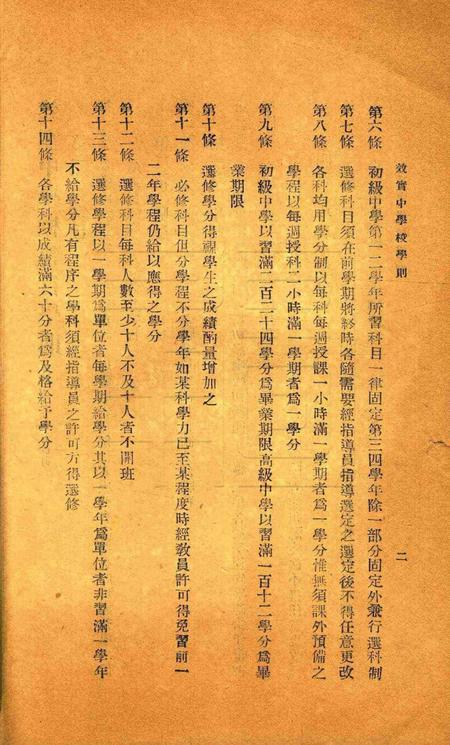 效實中學校學則
二
第六條　初級中學第一二學年所習科目一律固定第三四學年除一部分固定外兼行選科制
第七條　選修科目須在前學期將終時各隨需要經指導員指導選定之選定後不得任意更改
第八條　各科均用學分制以每科每週授課一小時滿一學期者爲一學分惟無須課外預備之
學程以每週授科二小時滿一學期者爲一學分
第九條　初級中學以習滿二百二十四學分爲畢業期限高級中學以習滿一百十二學分爲畢
業期限
第十條　選修學分得視學生之成績酌量增加之
第十一條　必修科目但分學程不分學年如某科學力已至某程度時經教員許可得免習前一
二年學程仍給以應得之學分
第十二條　選修科目每科人數至少十人不及十人者不開班
第十三條　選修學程以一學期爲單位者每學期給學分其以一學年爲單位者非習滿一學年
不給學分凡有程序之學科須經指導員之許可方得選修
第十四條　各學科以成績滿六十分者爲及格給予學分